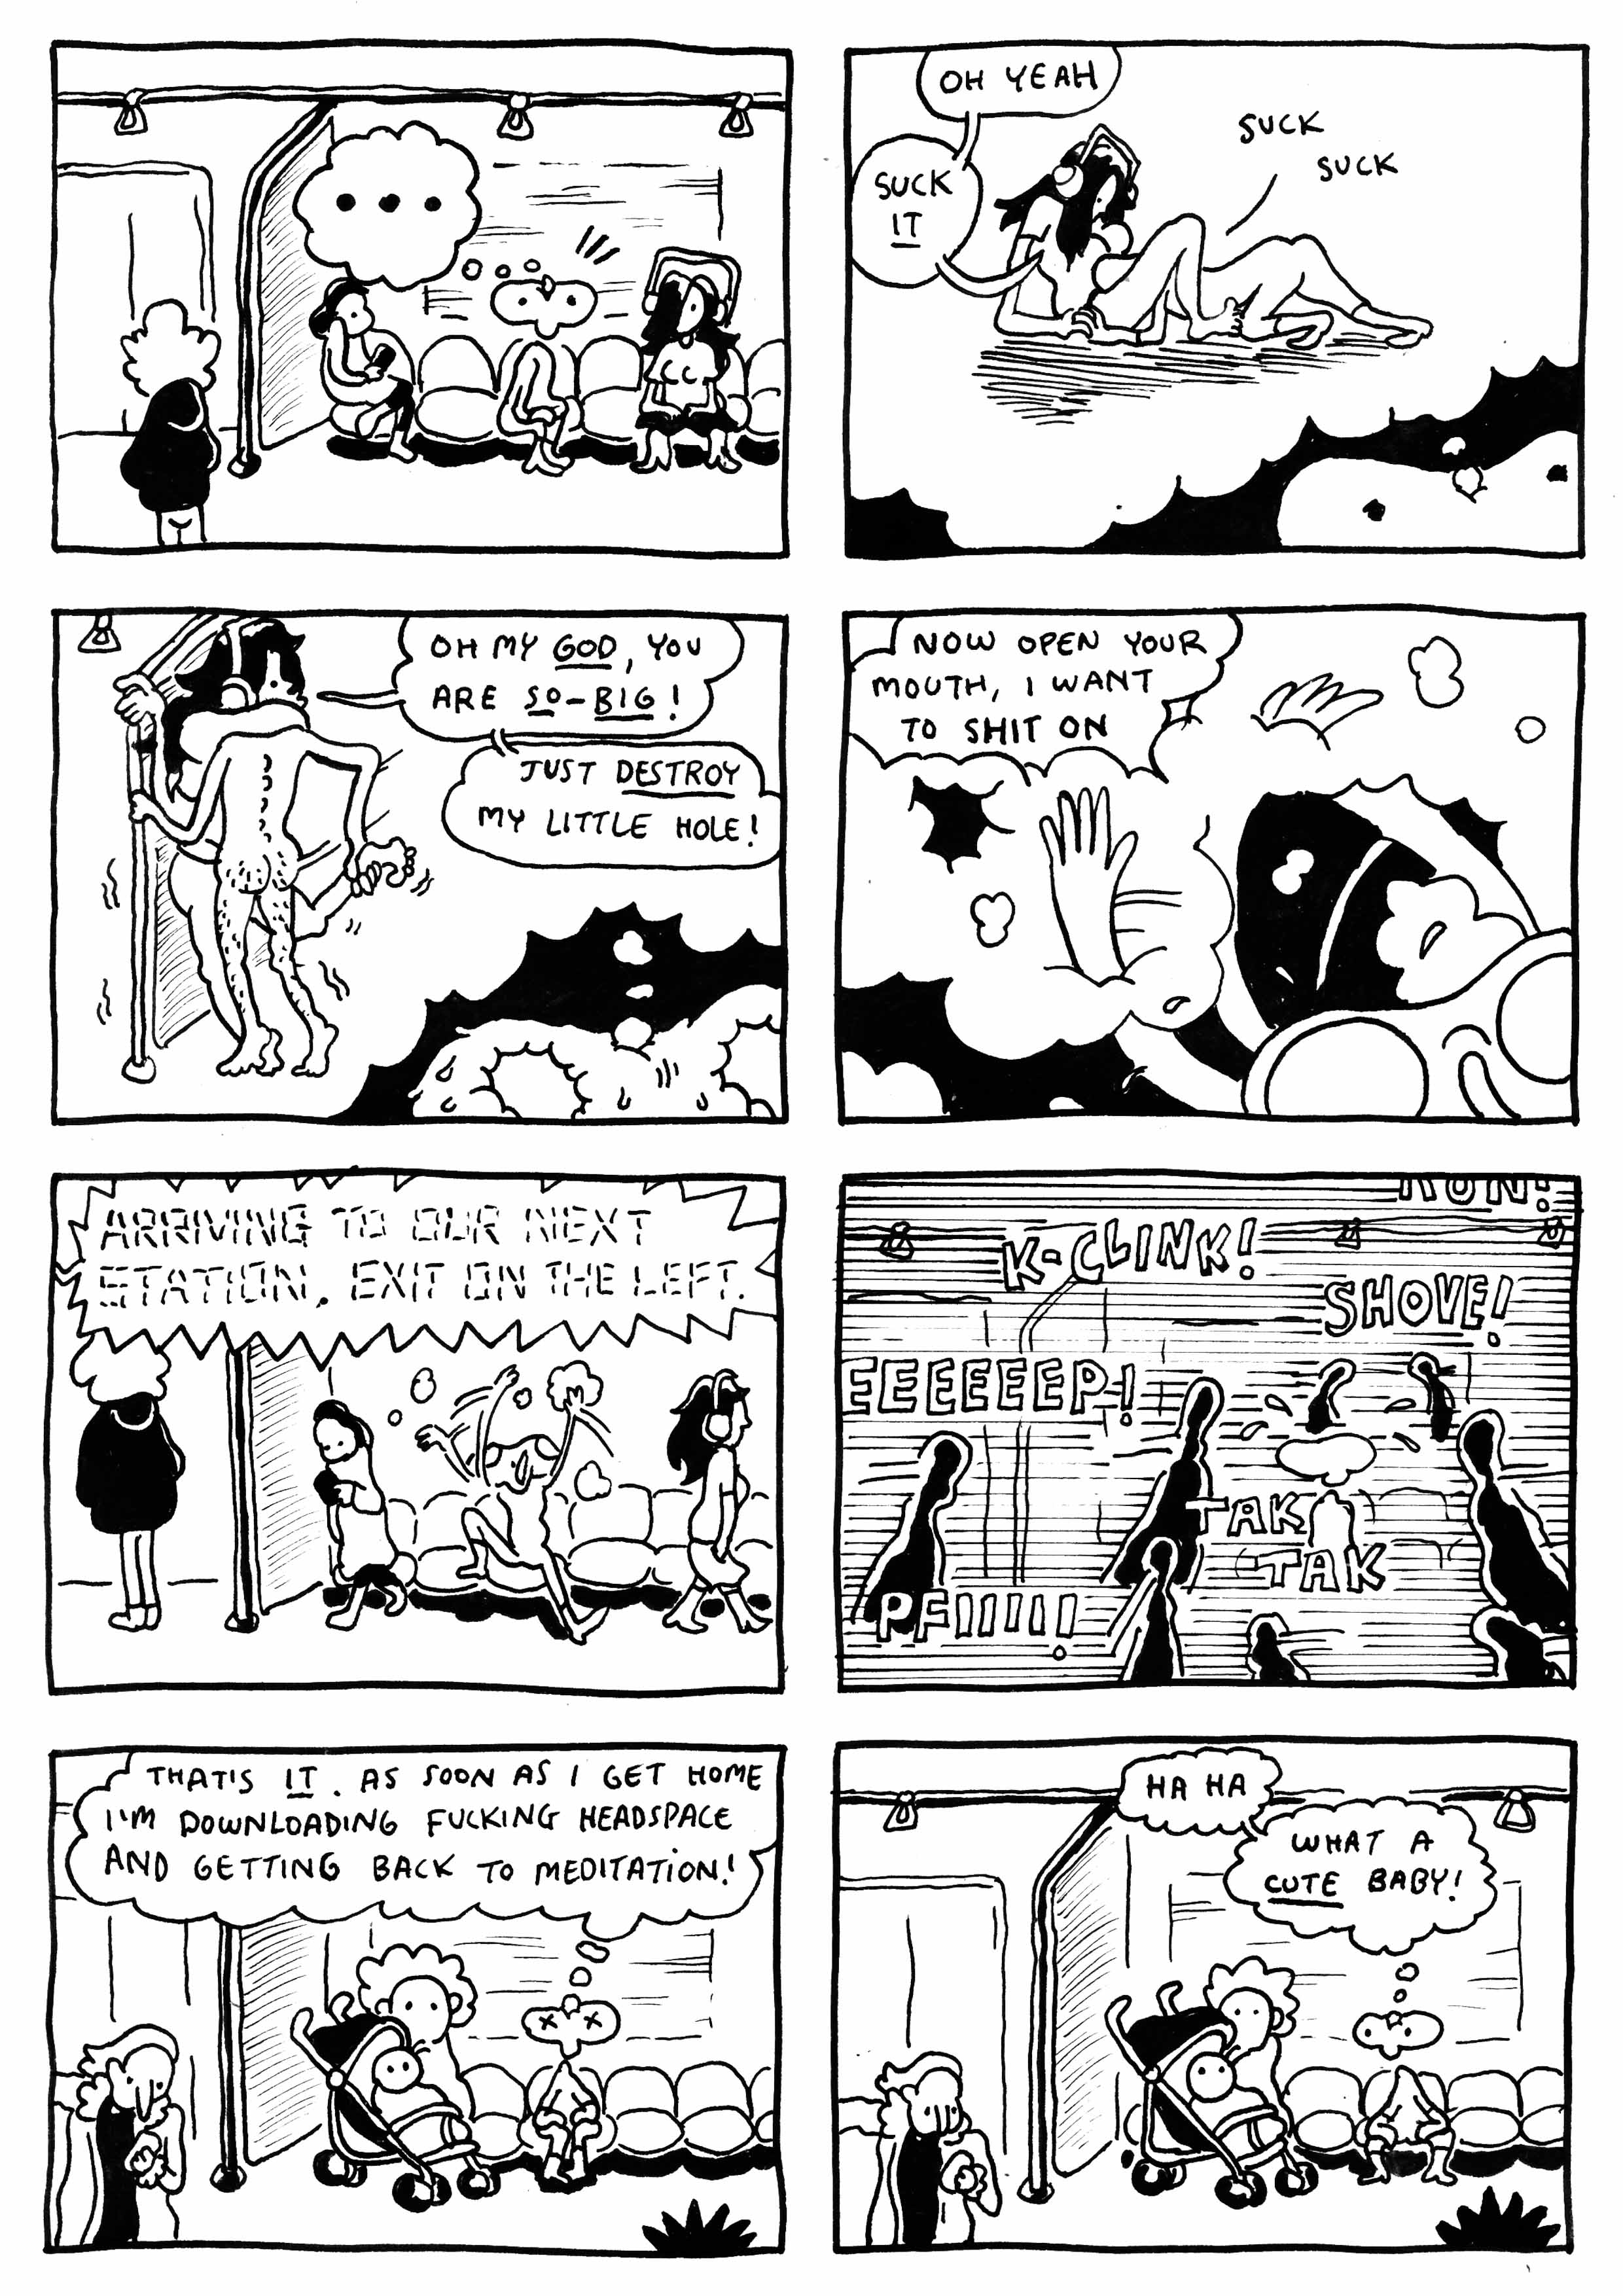 ...
OH YEAH
SUCK
IT
SUCK
SUCK
OH MY GOD, YOU
ARE SO-BIG!
JUST DESTROY
MY LITTLE HOLE!
NOW OPEN YOUR
MOUTH, I WANT
TO SHIT ON
ARRIVING TO OUR NEXT
STATION. EXIT ON THE LEFT.
K-CLINK!
SHOVE!
EEEEEEEP!
TAK
TAK
PFIIIIII!
THAT'S IT. AS SOON AS I GET HOME
I'M DOWNLOADING FUCKING HEADSPACE
AND GETTING BACK TO MEDITATION!
HA HA
WHAT A
CUTE BABY!